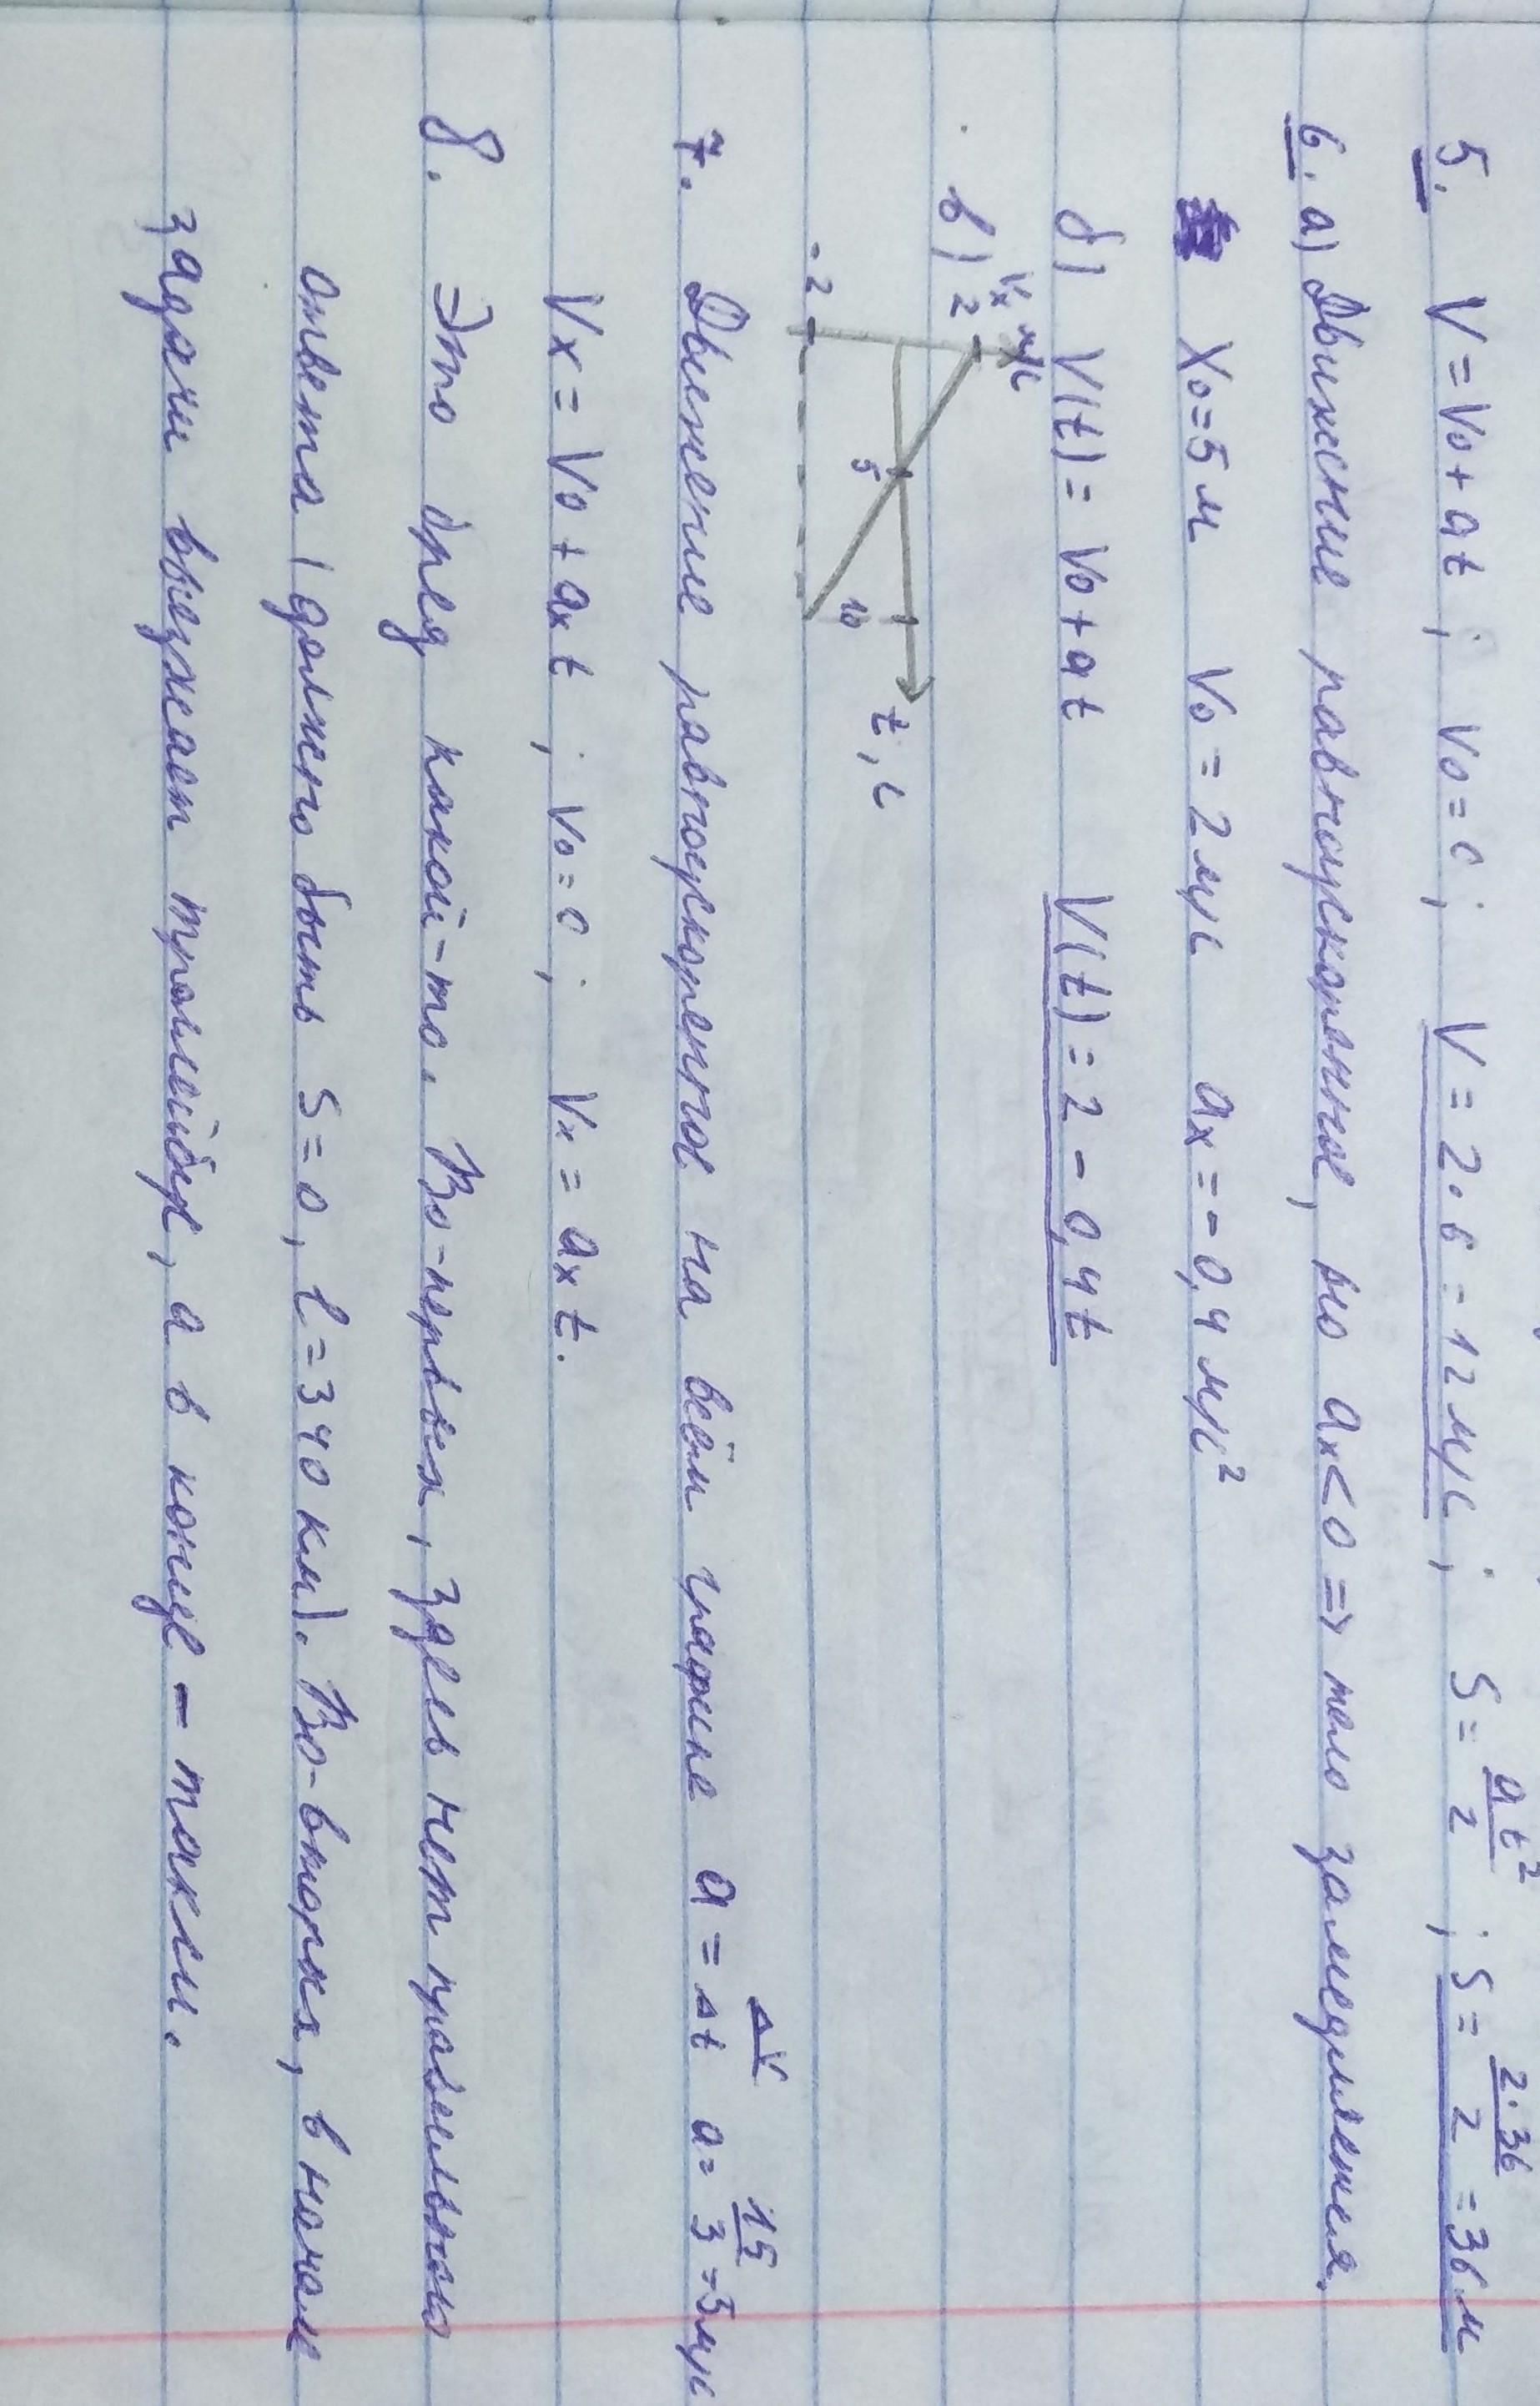 5. V = V₀ + at ; V₀ = 0 ; V = 2 · 6 = 12 м/с ; S = at²/2 ; S = 2·36/2 = 36 м
6. а) Движение равноускоренное, но ax < 0 => тело замедляется.
X₀ = 5 м V₀ = 2 м/с ax = -0,4 м/с²
б) V(t) = V₀ + at V(t) = 2 - 0,4t
в) Vx м/с
2
5 10 t, с
-2
7. Движение равноускоренное на всём графике a = ΔV/Δt a = 15/3 = 5 м/с
Vx = V₀ + axt ; V₀ = 0 ; Vx = axt.
8. Это бред какой-то. Во-первых, здесь нет правильного
ответа (должно быть S = 0, l = 340 км). Во-вторых, в начале
задачи выезжает троллейбус, а в конце - такси.